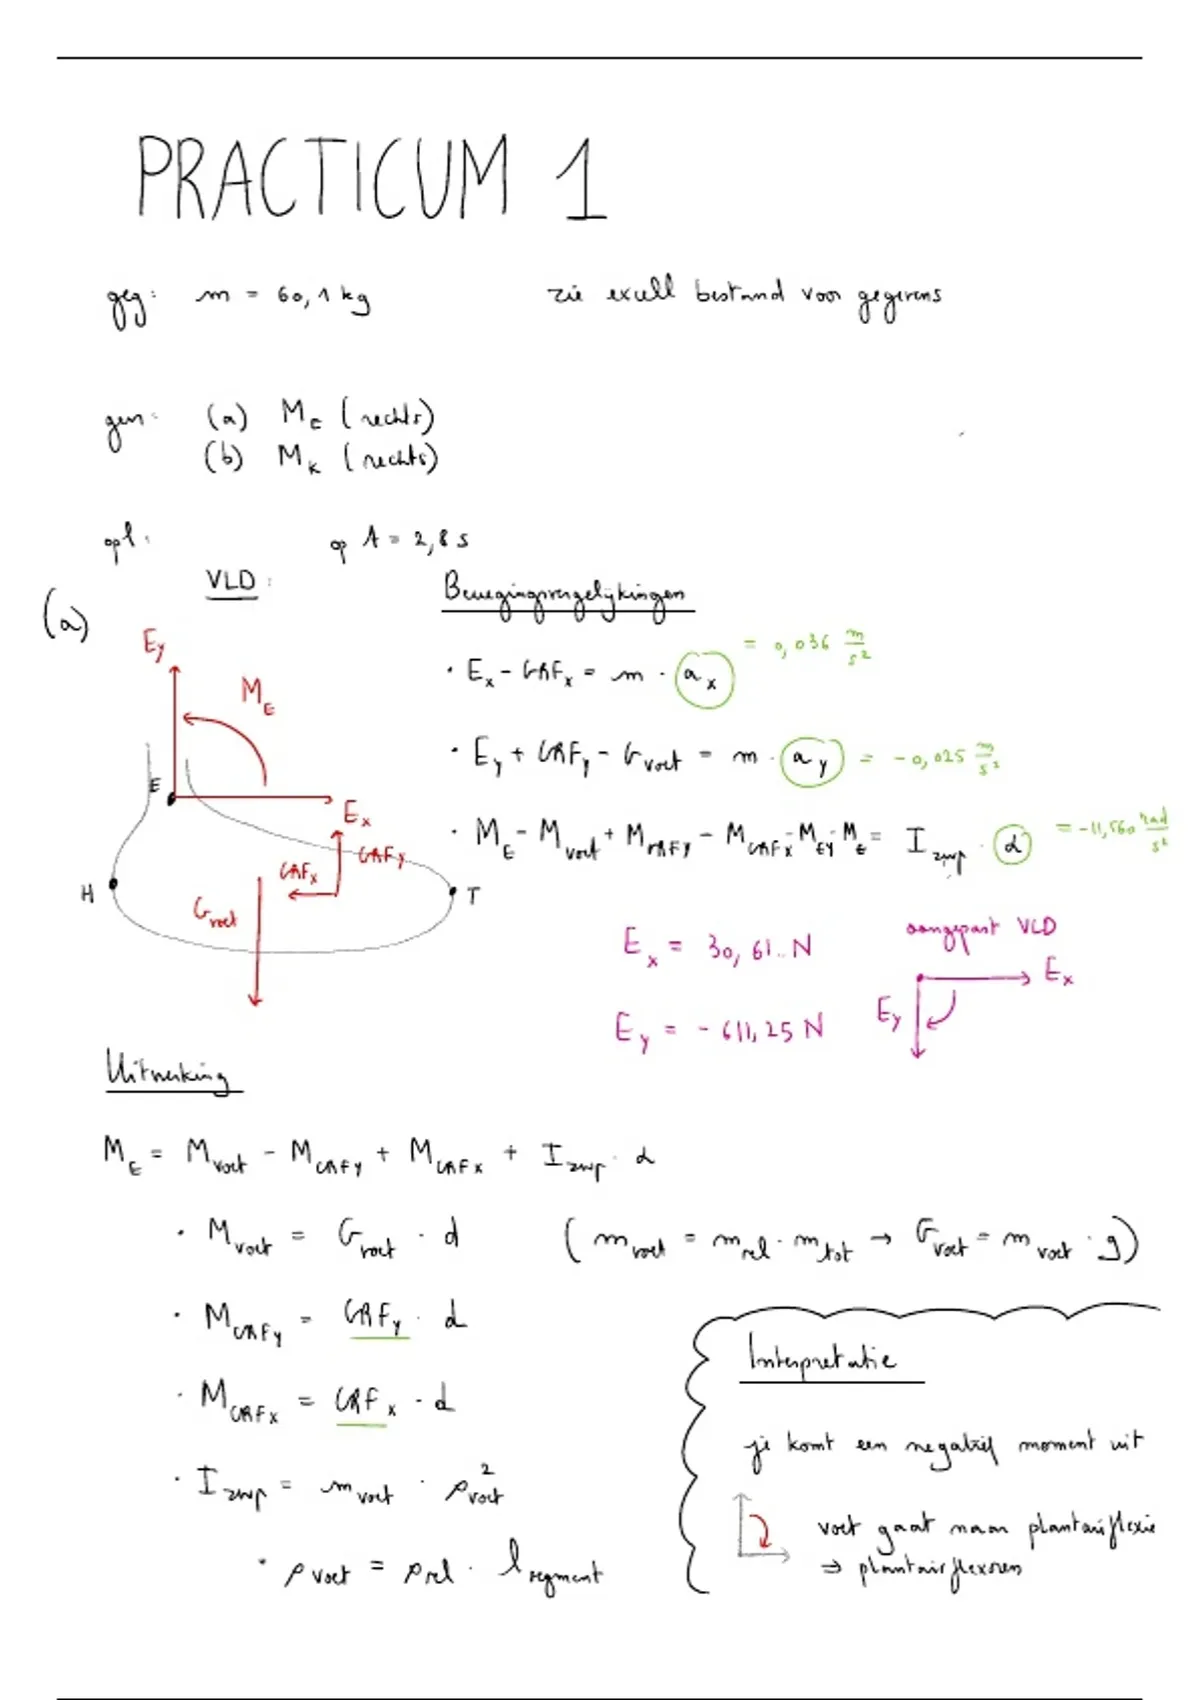 PRACTICUM 1
geg: m = 60,1 kg zie excell bestand voor gegevens
gevr: (a) M_E (rechts)
(b) M_K (rechts)
opl: op t = 2,8 s
(a) VLD: Bewegingsvergelijkingen
E_y
M_E
E
E_x
GRF_x
GRF_y
H
G_voet
T
• E_x - GRF_x = m · a_x = 0,036 m/s²
• E_y + GRF_y - G_voet = m · a_y = -0,025 m/s²
• M_E - M_voet + M_GRFy - M_GRFx - M_Ey - M_E = I_zwp · α = -11,560 rad/s²
E_x = 30,61.. N
E_y = - 611,25 N
aangepast VLD
E_x
E_y
Uitwerking
M_E = M_voet - M_GRFy + M_GRFx + I_zwp · α
• M_voet = G_voet · d (m_voet = m_rel · m_tot → G_voet = m_voet · g)
• M_GRFy = GRF_y · d
• M_GRFx = GRF_x · d
• I_zwp = m_voet · ρ²_voet
• ρ_voet = ρ_rel · l_segment
Interpretatie
je komt een negatief moment uit
voet gaat naar plantairflexie
⇒ plantairflexoren